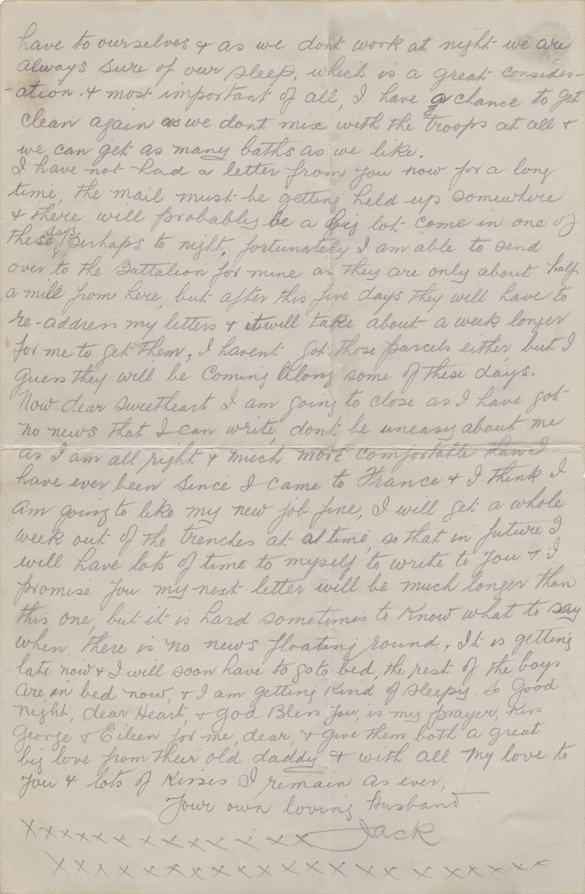 have to ourselves & as we dont work at night we are
always sure of our sleep, which is a great consider-
-ation. & most important of all, I have a chance to get
clean again as we dont mix with the troops at all &
we can get as many baths as we like.
I have not had a letter from you now for a long
time, the mail must be getting held up somewhere
& there will probably be a big lot come in one of
these days, perhaps to night, fortunately I am able to send
over to the Battalion for mine as they are only about half
a mile from here, but after this five days they will have to
re-address my letters & it will take about a week longer
for me to get them, I havent got those parcels either but I
guess they will be coming along some of these days.
Now dear sweetheart I am going to close as I have got
no news that I can write, dont be uneasy about me
as I am all right & much more comfortable than I
have ever been since I came to France & I think I
am going to like my new job fine, I will get a whole
week out of the trenches at a time, so that in future I
will have lots of time to myself to write to you & I
promise you my next letter will be much longer than
this one, but it is hard sometimes to know what to say
when there is no news floating round. It is getting
late now & I will soon have to go to bed, the rest of the boys
are in bed now, & I am getting kind of sleepy. So Good
night, dear Heart, & God Bless you, is my prayer, Kiss
George & Eileen for me, dear, & give them both a great
big love from their old daddy & with all my love to
you & lots of kisses I remain as ever,
Your own loving Husband
xxxxxxxxxxxxxxxx Jack
xxxxxxxxxxxxxxxxxxxxxxx